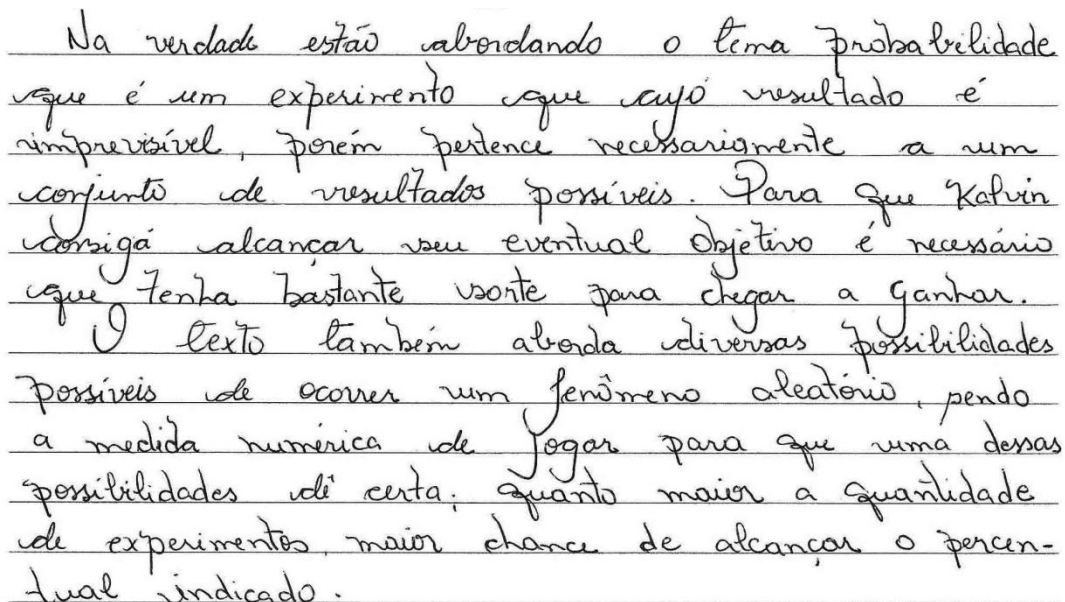 Na verdade estão abordando o tema probabilidade
que é um experimento que cujo resultado é
imprevisível, porém pertence necessariamente a um
conjunto de resultados possíveis. Para que Kalvin
consiga alcançar seu eventual objetivo é necessário
que tenha bastante sorte para chegar a ganhar.
O texto também aborda diversas possibilidades
possíveis de ocorrer um fenômeno aleatório, pendo
a medida numérica de jogar para que uma dessas
possibilidades dê certa; quanto maior a quantidade
de experimentos, maior chance de alcançar o percen-
tual indicado.